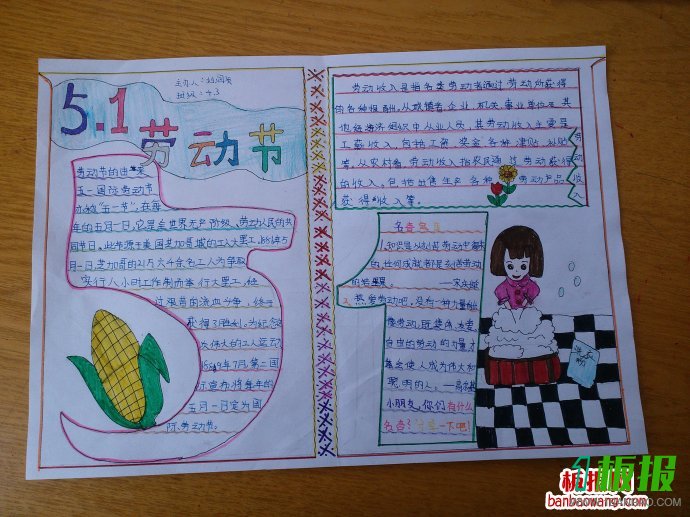 主办人:
班级:4.3
5.1劳动节
劳动节的由来
五一国际劳动节
亦称"五一节",在每
年的五月一日,它是全世界无产阶级、劳动人民的共
同节日。此节源于美国芝加哥城的工人大罢工,1886年5
月一日,芝加哥的21万6千余名工人为争取
实行八小时工作制而举行大罢工,经
过艰苦的流血斗争,终于
获得了胜利。为纪念
伟大的工人运动
1889年7月,第二国
宣布将每年的
五月一日定为国
际劳动节。
劳动收入是指各类劳动者通过劳动所获得
的各种报酬。从城镇看企业、机关、事业单位及其
他经济组织中从业人员,其劳动收入主要是
工薪收入,包括工资、奖金、各种津贴、补贴
等,从农村看,劳动收入指农民通过劳动获得
的收入,包括出售生产各种劳动产品
获得收入等。
劳动收入
名言
1.知识是从刻苦劳动中得来
的,任何成就都是刻苦劳动
的结果。 ——宋庆龄
2.热爱劳动吧。没有一种力量能
像劳动,既集体、友爱、
自由的劳动的力量才
使人成为伟大和
聪明的人。——高尔基
小朋友,你们有什么
名言?分享一下吧!
洗衣粉
板报网
banbaowang.com
板报